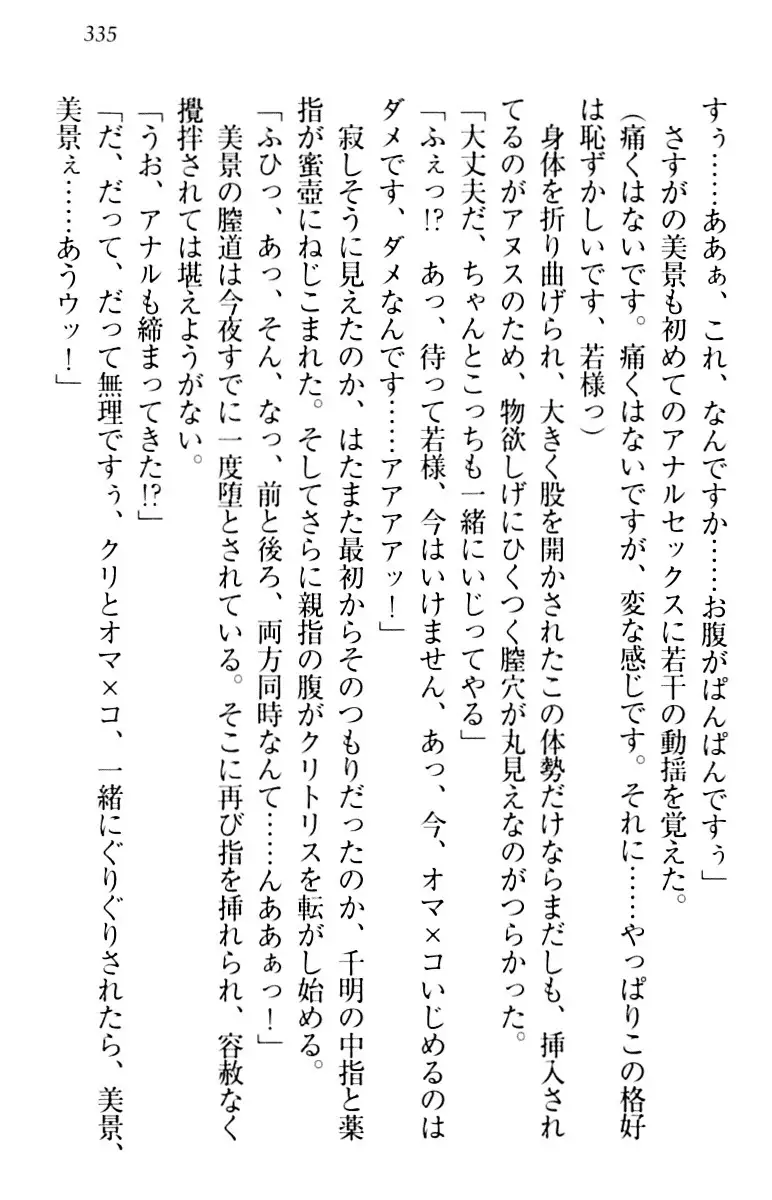 335
すぅ……ああぁ、これ、なんですか……お腹がぱんぱんですぅ」
　さすがの美景も初めてのアナルセックスに若干の動揺を覚えた。
（痛くはないです。痛くはないですが、変な感じです。それに……やっぱりこの格好
は恥ずかしいです、若様っ）
　身体を折り曲げられ、大きく股を開かされたこの体勢だけならまだしも、挿入され
てるのがアヌスのため、物欲しげにひくつく膣穴が丸見えなのがつらかった。
「大丈夫だ、ちゃんとこっちも一緒にいじってやる」
「ふぇっ!?　あっ、待って若様、今はいけません、あっ、今、オマ×コいじめるのは
ダメです、ダメなんです……アアアアッ！」
　寂しそうに見えたのか、はたまた最初からそのつもりだったのか、千明の中指と薬
指が蜜壺にねじこまれた。そしてさらに親指の腹がクリトリスを転がし始める。
「ふひっ、あっ、そん、なっ、前と後ろ、両方同時なんて……んああぁっ！」
　美景の膣道は今夜すでに一度堕とされている。そこに再び指を挿れられ、容赦なく
攪拌されては堪えようがない。
「うお、アナルも締まってきた!?」
「だ、だって、だって無理ですぅ、クリとオマ×コ、一緒にぐりぐりされたら、美景、
美景ぇ……あうウッ！」